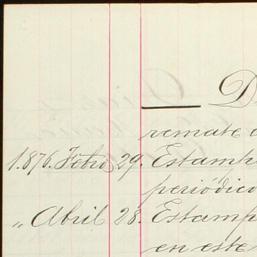 D
remate d
1.876. Febro 29. Estamp
periódico
„ Abril 28. Estamp
en este